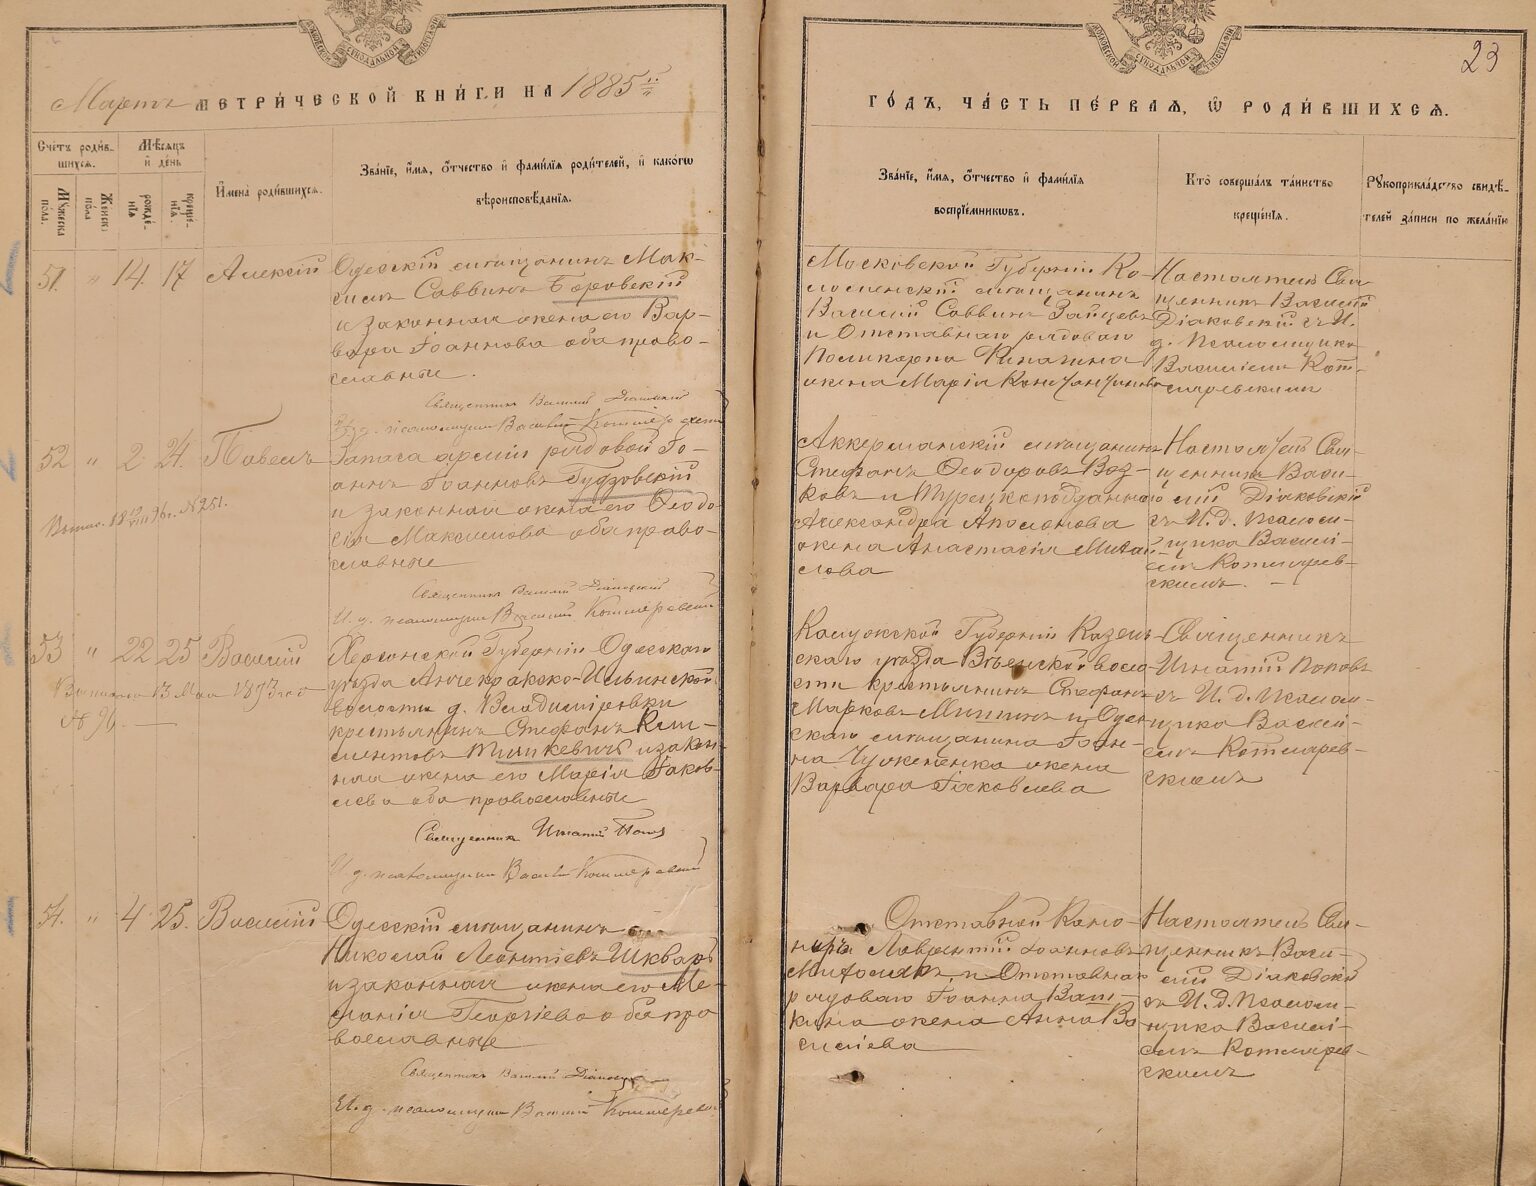 МОСКОВСКОЙ СѴНОДАЛЬНОЙ ТИПОГРАФІИ
МОСКОВСКОЙ СѴНОДАЛЬНОЙ ТИПОГРАФІИ
23
Мартъ МЕТРИ́ЧЕСКОЙ КНИ́ГИ НА 1885й
ГО́ДЪ, ЧА́СТЬ ПЕ́РВАЯ, Ѿ РОДИ́ВШИХСЯ.
Сче́тъ роди́в-
шихся.
Мѣ́сяцъ
и де́нь
Му́жеска
по́ла.
Же́нска
по́ла
рожде́-
нїя
креще́-
нїя
И҆мена̀ роди́вшихся.
Зва́нїе, и҆́мя, ѻ҆́тчество и҆ фами́лїя роди́телей, и҆ како́гѡ
вѣроисповѣ́данїя.
Зва́нїе, и҆́мя, ѻ҆́тчество и҆ фами́лїя
воспрїе́мниковъ.
Кто̀ соверша́лъ та́инство
креще́нїя.
Рукоприкла́дство свидѣ́-
телей за́писи по жела́нїю
51. " 14. 17 Алексій
Одесскій мѣщанинъ Мак-
симъ Саввинъ Боровскій
и законная жена его Вар-
вара Іоаннова оба право-
славные.
Священникъ Василій Діаковскій
И. д. псаломщика Василій
Московской Губерніи Ко-
ломенскій мѣщанинъ
Василій Саввинъ Зайцевъ
и Отставнаго рядоваго
Поликарпа
жена Марія Константинова
Настоятель Свя-
щенникъ Василій
Діаковскій съ И.
д. Псаломщика
Василіемъ Кот-
ляревскимъ
52 " 2 24. Павелъ
Запаса арміи рядовой Іо-
аннъ Іоанновъ Гудзовскій
и законная жена его Ѳеодо-
сія Максимова оба право-
славные
Выпис. 18 96г. №251.
Священникъ Василій Діаковскій
И. д. псаломщика Василій Котляревскій
Аккерманскій мѣщанинъ
Стефанъ Ѳеодоровъ Воз-
ковъ и Турецкоподданнаго
Александра Аполонова
жена Анастасія Михаи-
лова
Настоятель Свя-
щенникъ Васи-
лій Діаковскій
съ И. д. псалом-
щика Василі-
емъ Котлярев-
скимъ.
53 " 22 25 Василій
Выписано 13 Мая 1893 года
№ 96.
Херсонской Губерніи Одесскаго
уѣзда Анчекракско-Ильинской
волости д. Владиміровки
крестьянинъ Стефанъ Кли-
ментовъ Тишкевичъ и закон-
ная жена его Марія Іаков-
лева оба православные
Священникъ Игнатій Поповъ
И. д. псаломщика Василій Котляревскій
Калужской Губерніи Козель-
скаго уѣзда воло-
сти крестьянинъ Стефанъ
Марковъ Мишинъ и Одес-
скаго мѣщанина Іоан-
на жена
Варвара Іаковлева
Священникъ
Игнатій Поповъ
съ И. Д. Псалом-
щика Василі-
емъ Котлярев-
скимъ
54. " 4 25. Василій
Одесскій мѣщанинъ
Николай Леонтіевъ Шкваръ
и законная жена его Ме-
ланія Георгіева оба пра-
вославные
Священникъ Василій Діаковскій
И. д. псаломщика Василій Котляревскій
Отставной Кано-
ниръ Лаврентій Іоанновъ
и Отставнаго
рядоваго Іоанна Ваш-
кина жена Анна Ва-
силіева
Настоятель Свя-
щенникъ Васи-
лій Діаковскій
съ И. Д. Псалом-
щика Василі-
емъ Котлярев-
скимъ